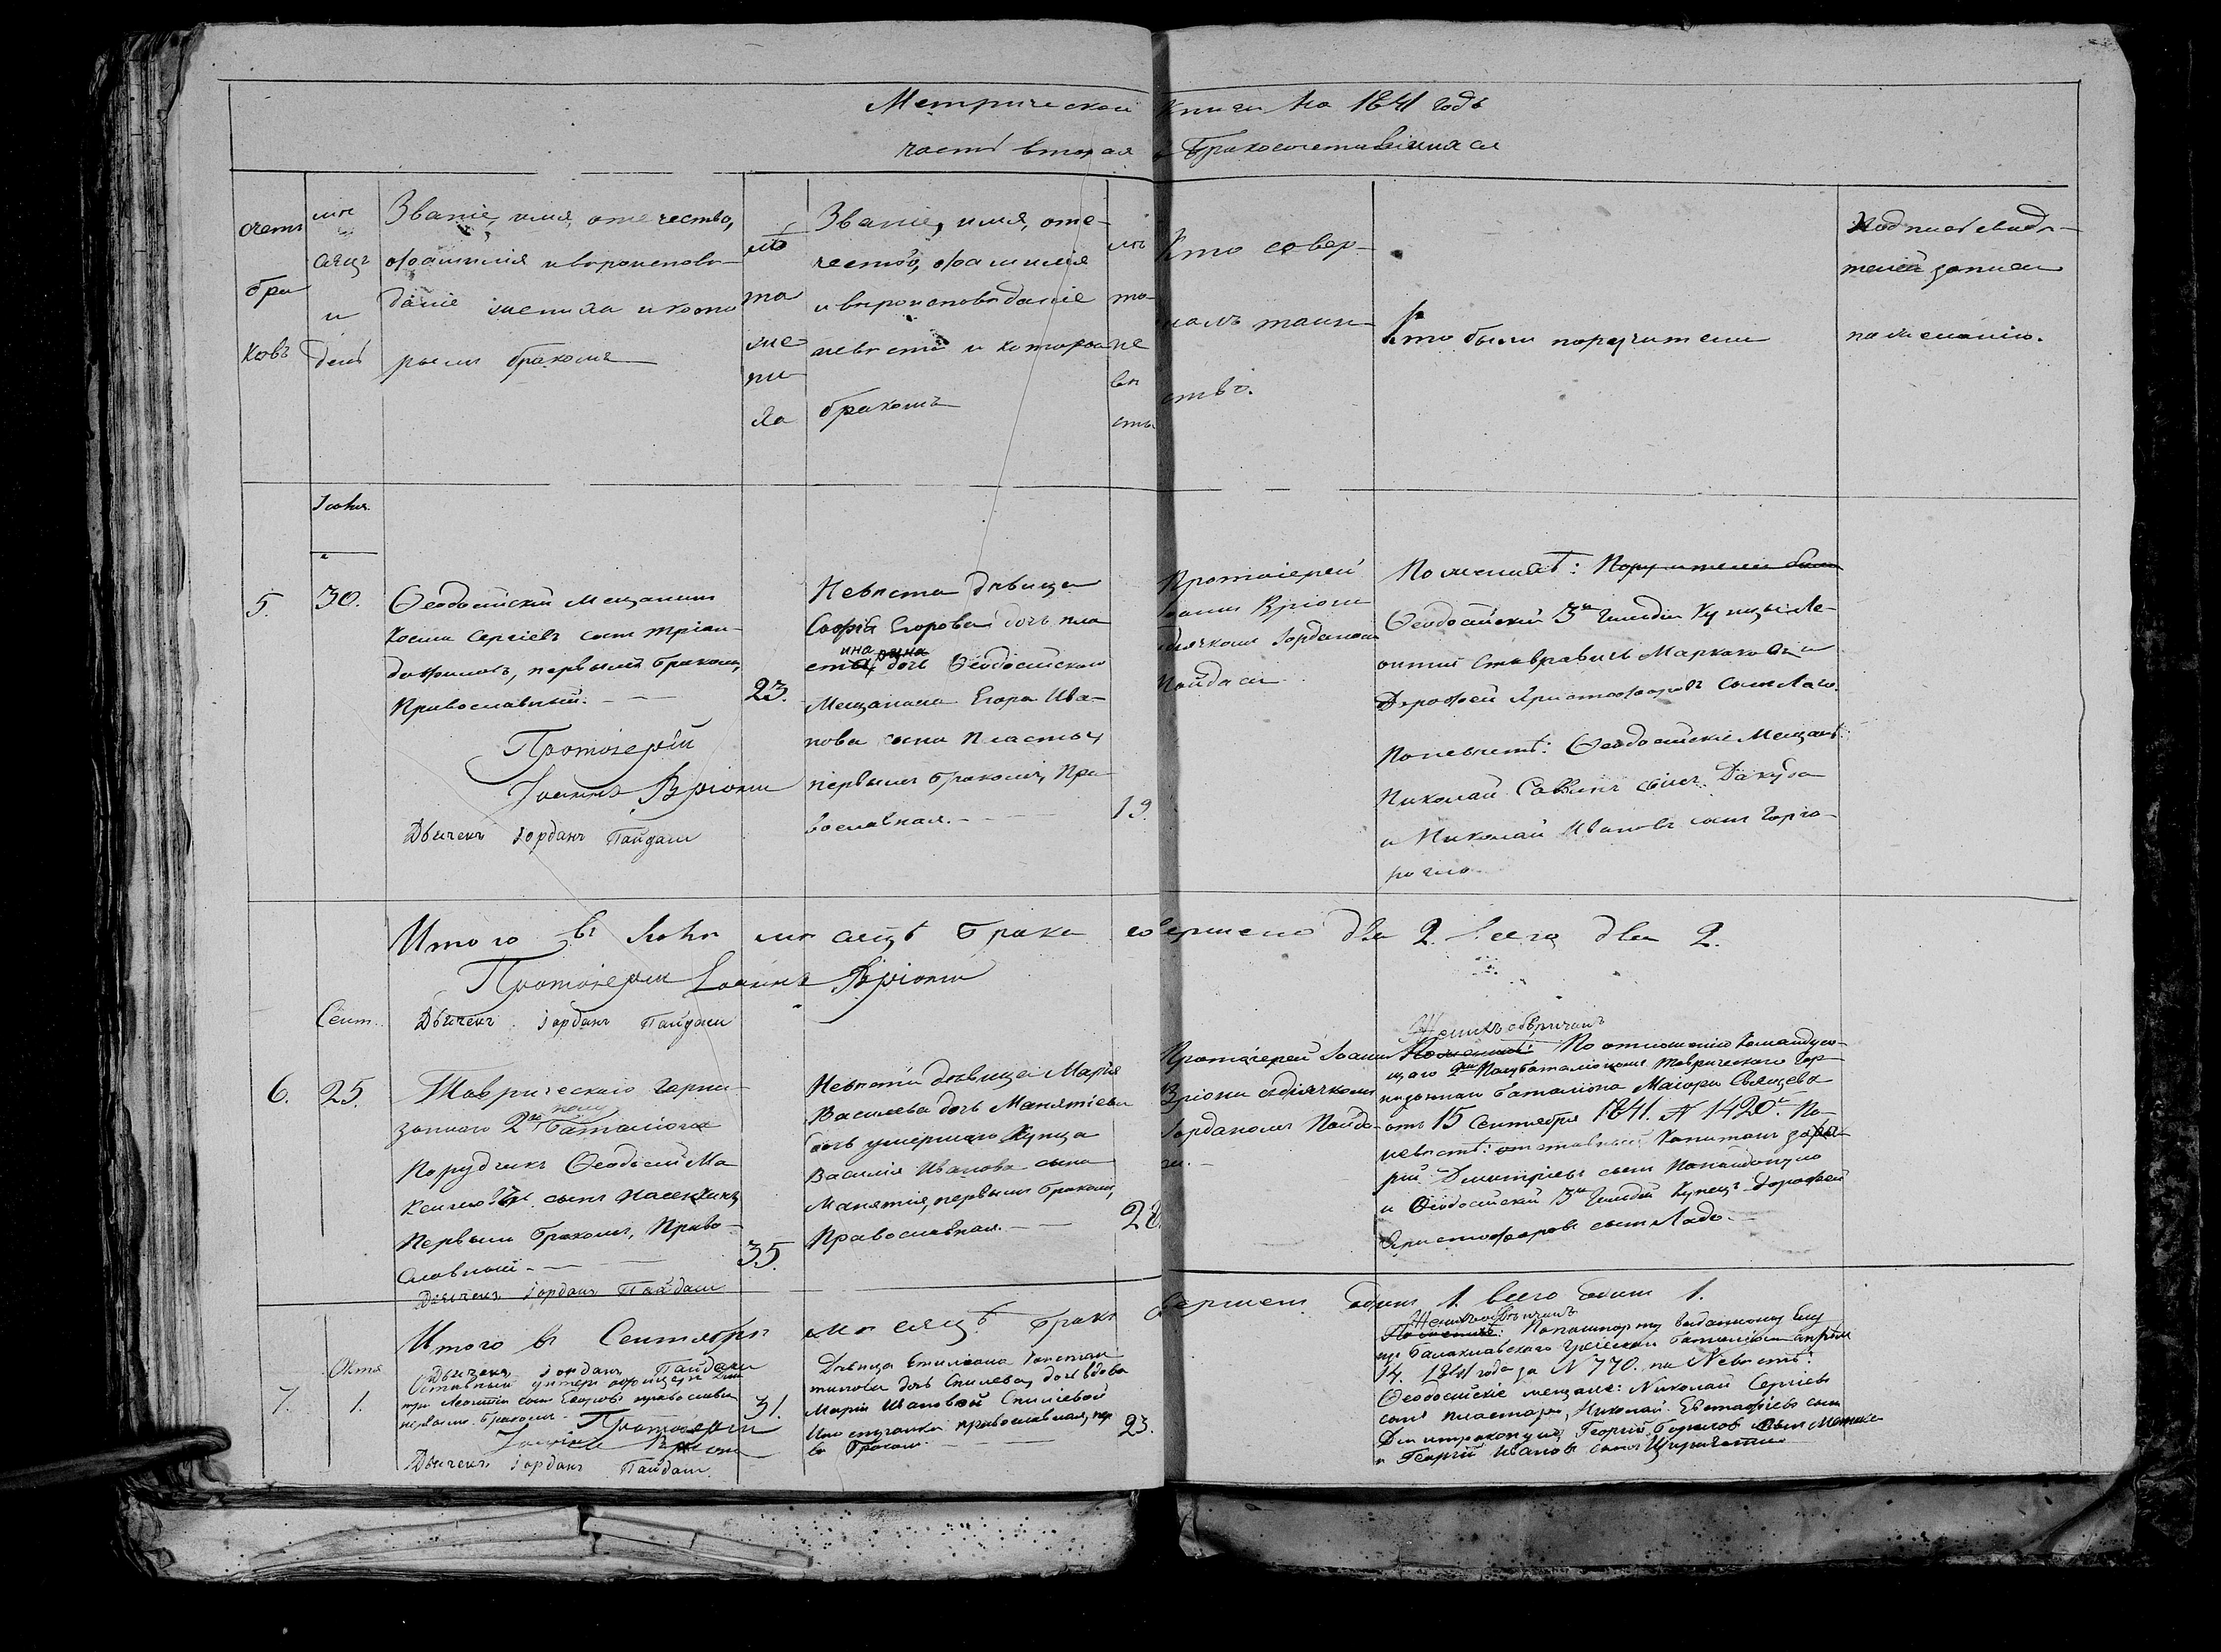 Метрической книги на 1841 годъ
часть вторая о бракосочетавшихся
счетъ
бра
ковъ
мѣ
сяцъ
и
день
Званіе, имя, отечество,
фамилія и вѣроисповѣ-
даніе жениха и кото
рымъ бракомъ
лѣ
та
же
ни
ха
Званіе, имя, оте-
чество, фамилія
и вѣроисповѣданіе
невѣсты и которымъ
бракомъ
лѣ
та
не
вѣ
сты
Кто совер-
шалъ таин-
ство.
Кто были поручители
Подпись свидѣ-
телей записи
по желанію.
Іюня
5.
30.
Ѳеодосійскій Мещанинъ
Косма Сергіевъ сынъ Тріан-
дафиловъ, первымъ бракомъ,
Православный.
23.
Протоіерей
Іоаннъ Вріони
Дьячекъ Іорданъ Пайдаси
Невѣста дѣвица
Софія Егорова дочь Пла
Ѳеодосійскаго
Мещанина Егора Ива-
нова сына
первымъ бракомъ, Пра
вославная.
19.
Протоіерей
Іоаннъ Вріони
дьячкомъ Іорданомъ
Пайдаси
По женихѣ: Поручители были
Ѳеодосійскій 3й Гильдіи Купцы Ле-
онтій
Дорофей Христофоровъ сынъ Ладо.
По невѣстѣ: Ѳеодосійскіе Мещане:
Николай Саввинъ сынъ
и Николай Ивановъ сынъ
Итого въ Іюнѣ мѣсяцѣ брака совершено два 2. всего два 2.
Протоіерей Іоаннъ Вріони
Дьячекъ Іорданъ Пайдаси
Сент.
6.
25.
Таврическаго Гарни-
зоннаго 2го полу
Баталіона
Порудчикъ Ѳеодосій Ма
сынъ
Первымъ бракомъ, Право-
славный
35.
Дьячекъ Іорданъ Пайдаси
Невѣста дѣвица Марія
Василева дочь
дочь умершаго Купца
Василія Иванова сына
первымъ бракомъ,
Православная.
28.
Протоіерей Іоаннъ
Вріони съ дьячкомъ
Іорданомъ Пайда-
си.
Женихъ обвѣнчанъ
По женихѣ: По отношенію Командую-
щаго 2мъ Полубаталіономъ Таврическаго Гар-
низоннаго Баталіона Маіора
отъ 15 Сентября 1841. N 1420. По
невѣстѣ: отставный Капитанъ
Димитріевъ сынъ
и Ѳеодосійскій 3й Гильдіи Купецъ Дорофей
Христофоровъ сынъ Ладо.
Итого въ Сентябрѣ мѣсяцѣ бракъ совершенъ одинъ 1. всего одинъ 1.
Дьячекъ Іорданъ Пайдаси
Октя
7.
1.
Отставный унтеръ офицеръ Дми
трій Леонтій сынъ православн
первымъ бракомъ.
31.
Протоіерей
Іоаннъ Вріони
Дьячекъ Іорданъ Пайдаси
Дѣвица
дочь дочь вдовы
Маріи Ивановой
Иностранка православная, пер
въ бракомъ
23.
Женихъ обвѣнчанъ
По женихѣ: По пашпорту выданному ему
изъ Балаклавскаго Греческаго Баталіона апрѣля
14. 1841 года за N 770. по Невѣстѣ:
Ѳеодосійскіе мещане: Николай Сергіевъ
сынъ Николай Евстафіевъ сынъ
Георгій сынъ
и Георгій Ивановъ сынъ